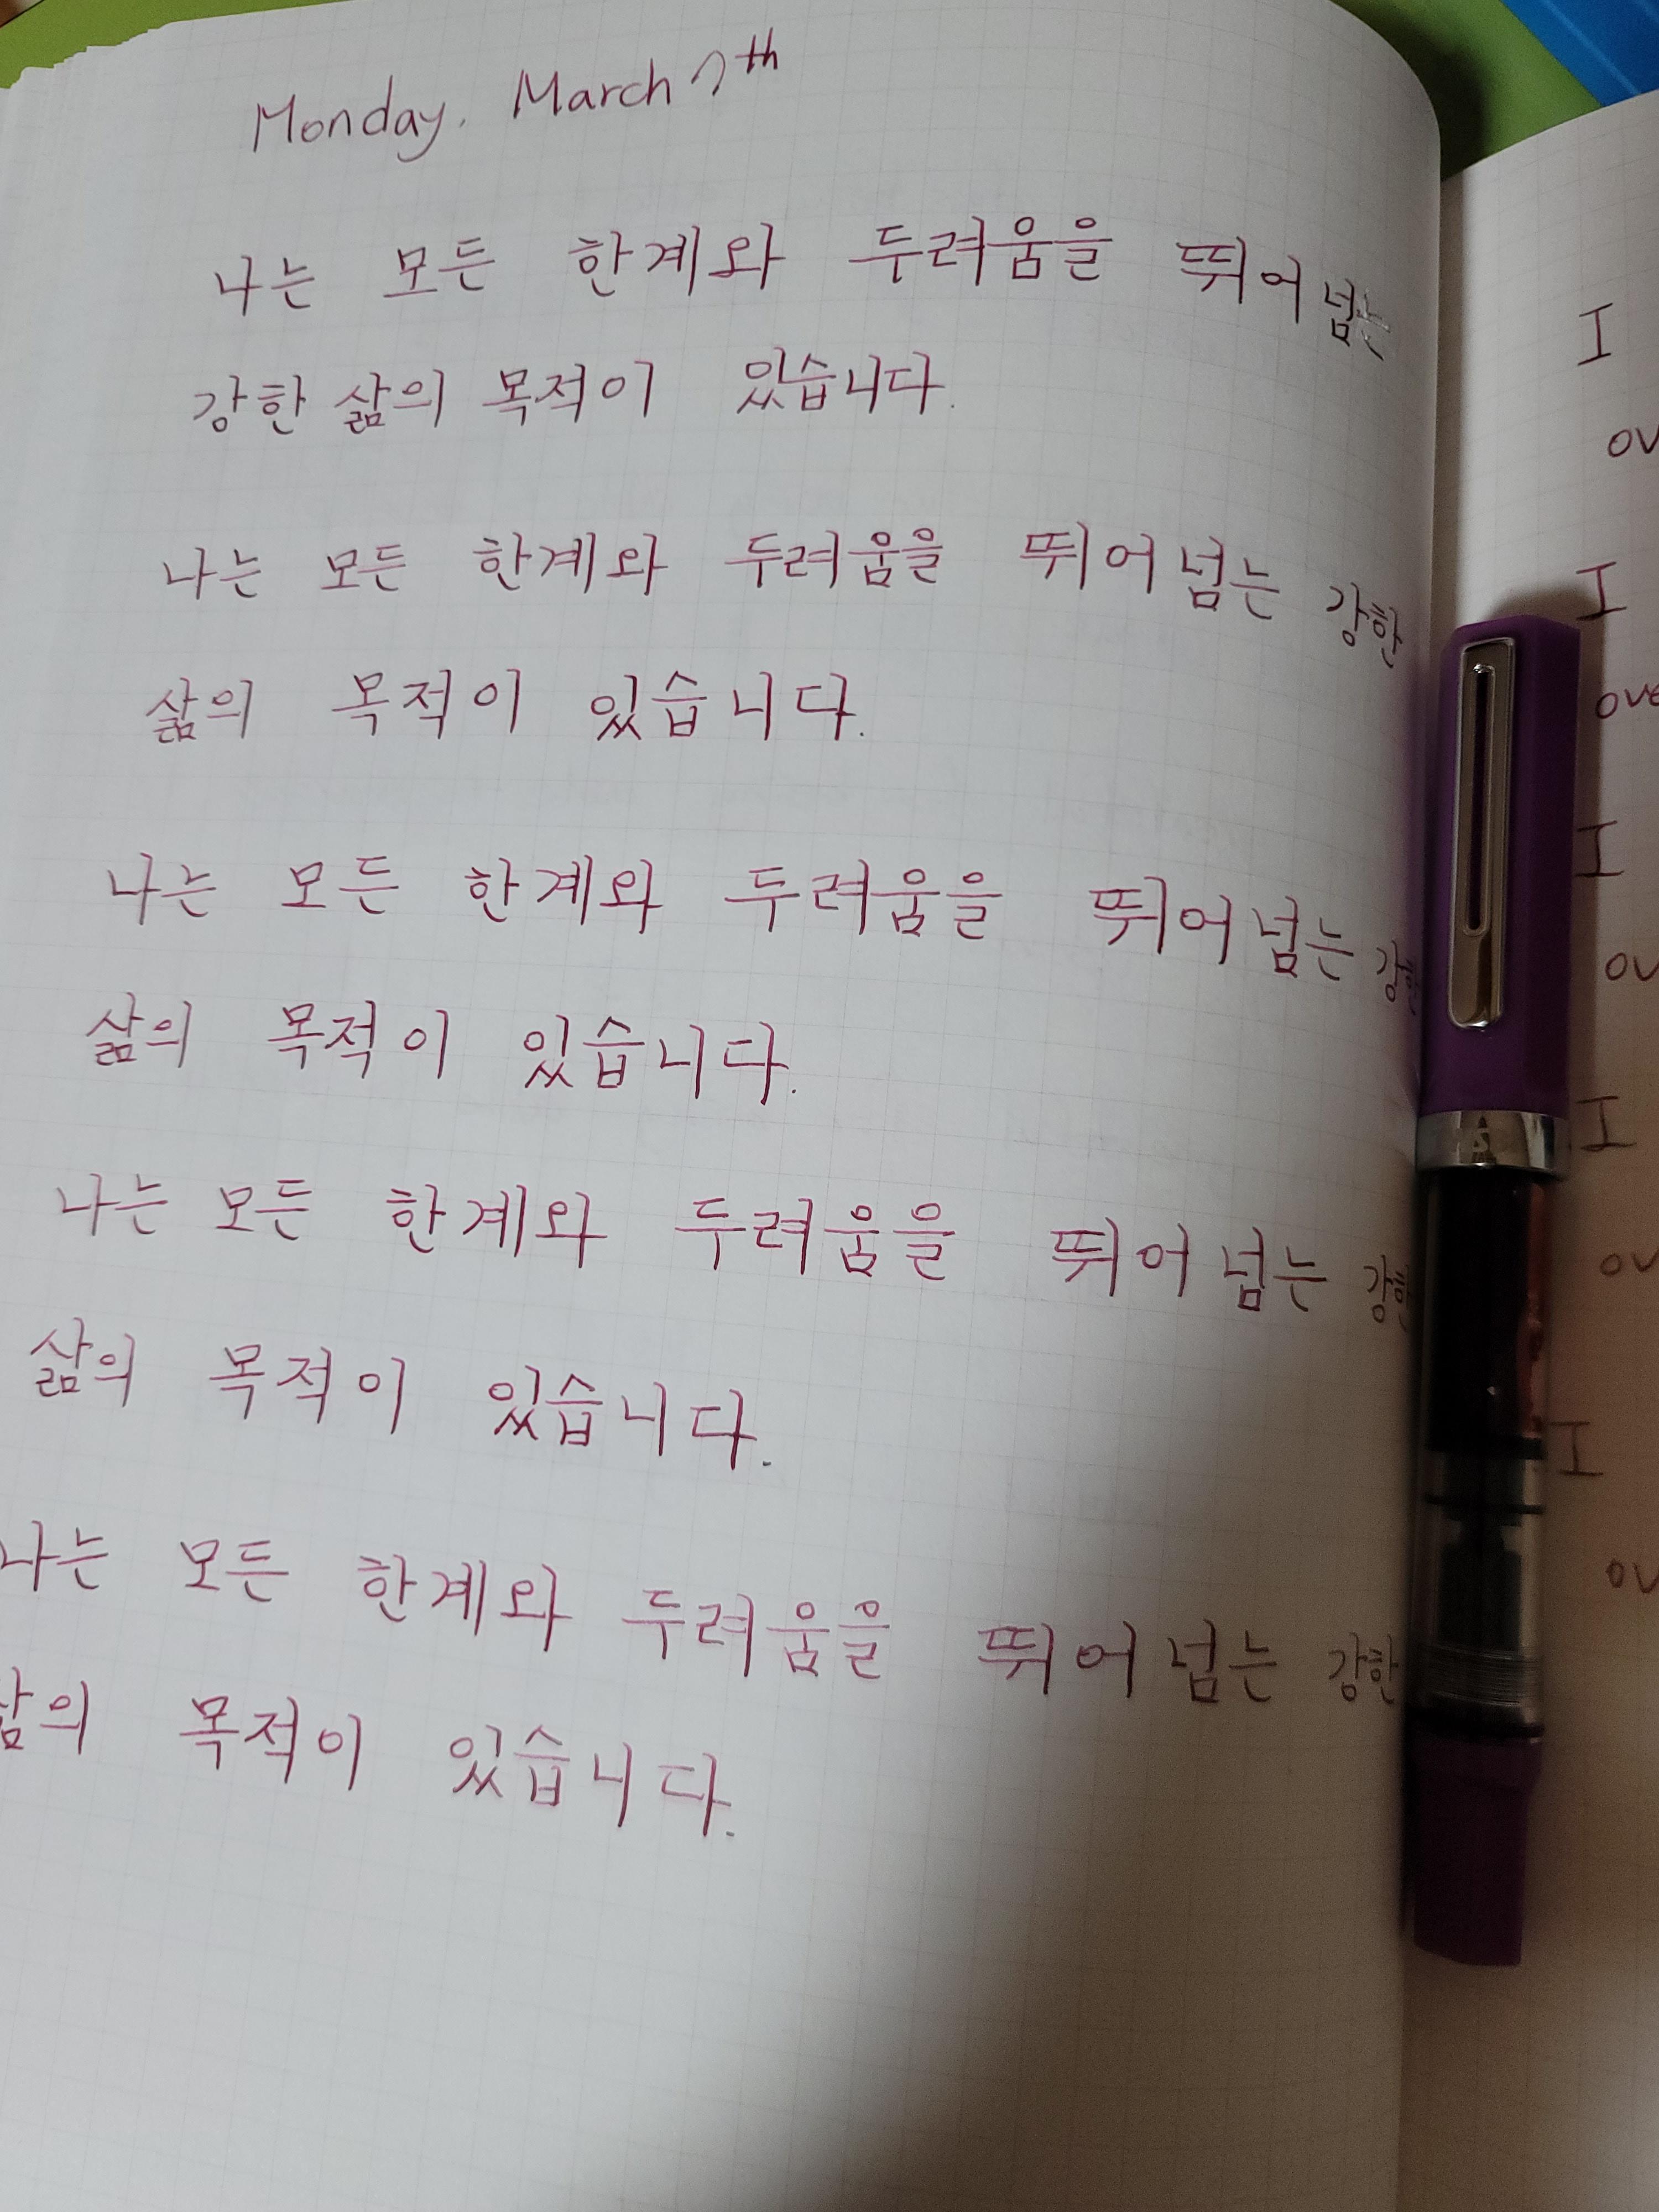 Monday. March 7th
나는 모든 한계와 두려움을 뛰어넘는
강한 삶의 목적이 있습니다.
나는 모든 한계와 두려움을 뛰어넘는 강한
삶의 목적이 있습니다.
나는 모든 한계와 두려움을 뛰어넘는 강한
삶의 목적이 있습니다.
나는 모든 한계와 두려움을 뛰어넘는 강한
삶의 목적이 있습니다.
나는 모든 한계와 두려움을 뛰어넘는 강한
삶의 목적이 있습니다.
I
I
I
I
I